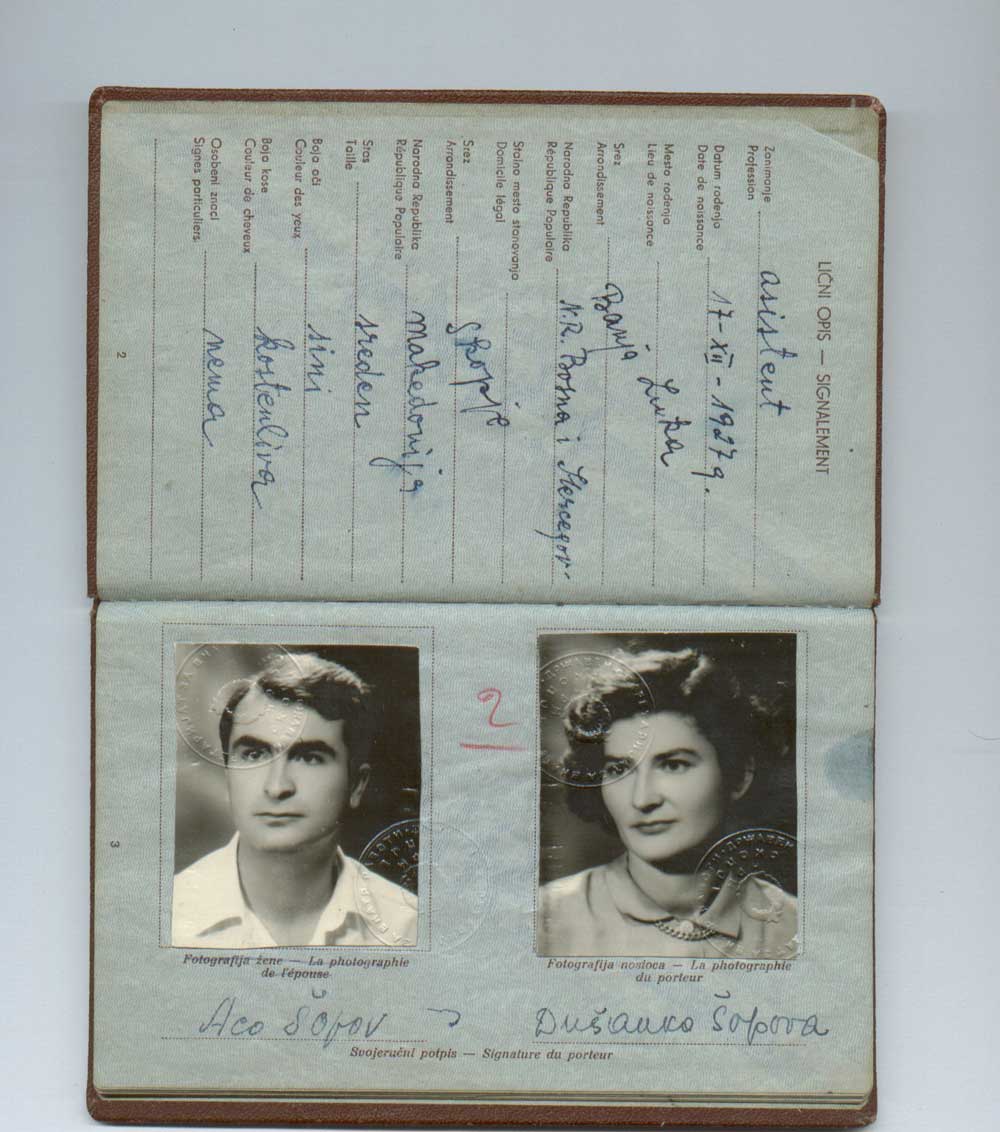 LIČNI OPIS — SIGNALEMENT
Zanimanje
Profession
asistent
Datum rođenja
Date de naissance
17-XII-1927 g.
Mesto rođenja
Lieu de naissance
Banja Luka
Srez
Arrondissement
Narodna Republika
République Populaire
N.R. Bosna i Hercegov.
Stalno mesto stanovanja
Domicile légal
Skopje
Srez
Arrondissement
Narodna Republika
République Populaire
Makedonija
Stas
Taille
sreden
Boja oči
Couleur des yeux
sini
Boja kose
Couleur de cheveux
kostenliva
Osobeni znaci
Signes particuliers
nema
2
2
3
Fotografija žene — La photographie
de l'épouse
Fotografija nosioca — La photographie
du porteur
Aco Šopov
Dušanka Šopova
Svojeručni potpis — Signature du porteur